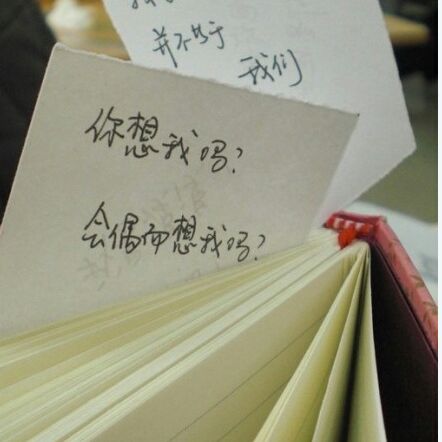 并不属于
我们
你想我吗?
会偶而想我吗?